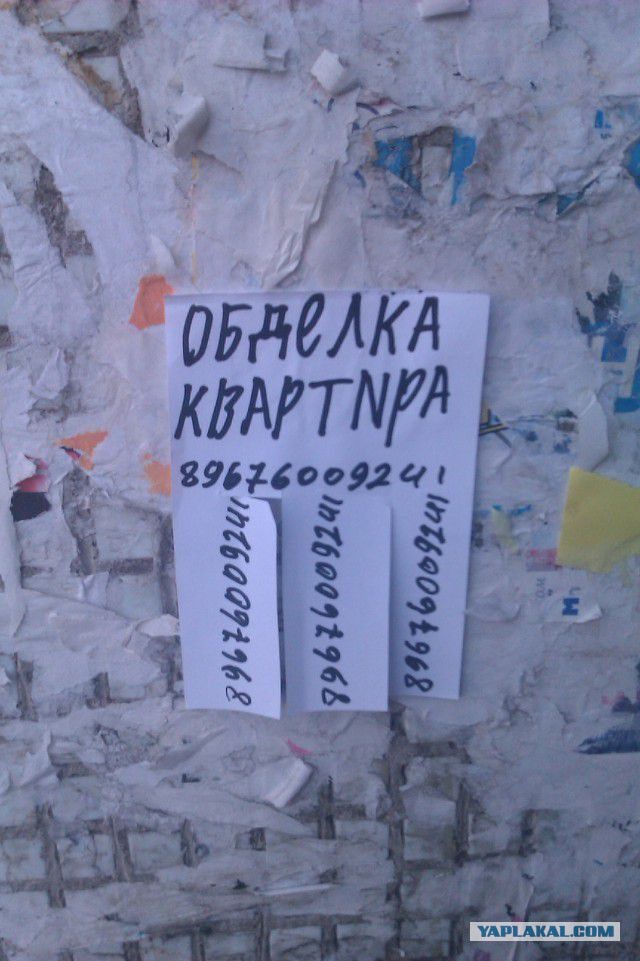 ОБДЕЛКА
КВАРТИРА
89676009241
89676009241
89676009241
89676009241
YAPLAKAL.COM